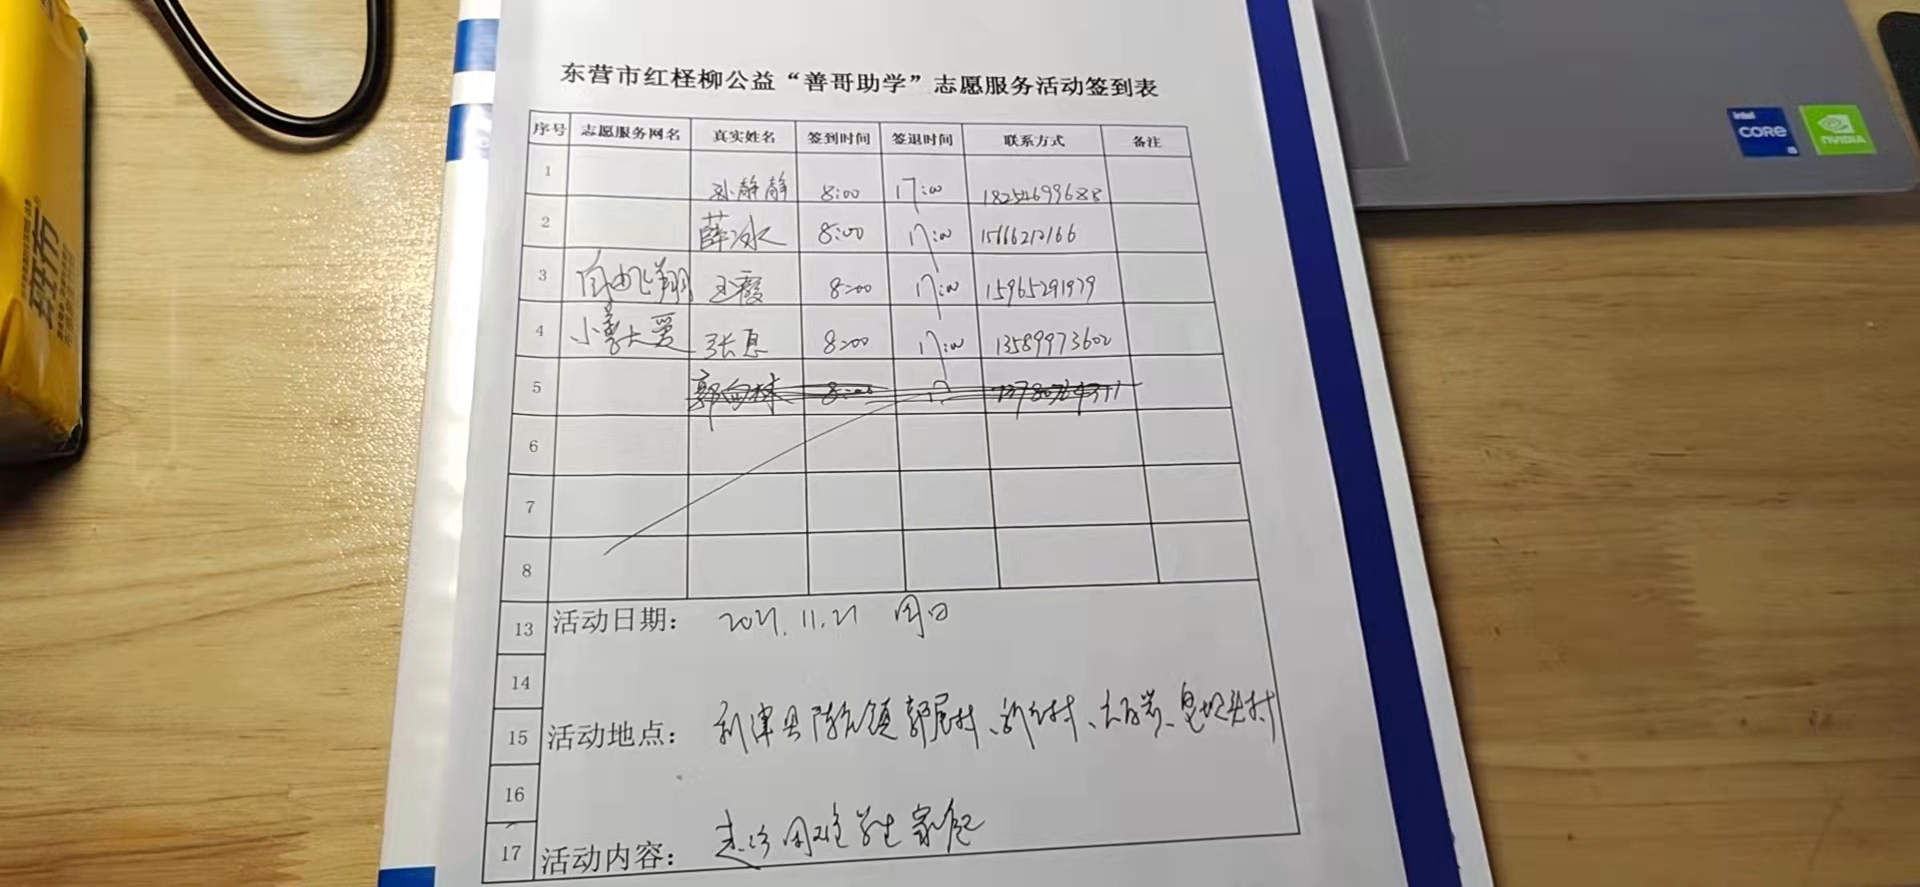 东营市红柽柳公益“善哥助学”志愿服务活动签到表
序号 志愿服务网名 真实姓名 签到时间 签退时间 联系方式 备注
1 孙静静 8:00 17:00 18254699688
2 薛冰 8:00 17:00
3 自由飞翔 王霞 8:00 17:00 15965291979
4 小善大爱 张息 8:00 17:00 13589973602
5
6
7
8
13 活动日期： 2021.11.21 周日
14
15 活动地点： 利津县陈庄镇郭屋村、
16
17 活动内容： 走访困难学生家庭
intel
CORE
i5
NVIDIA